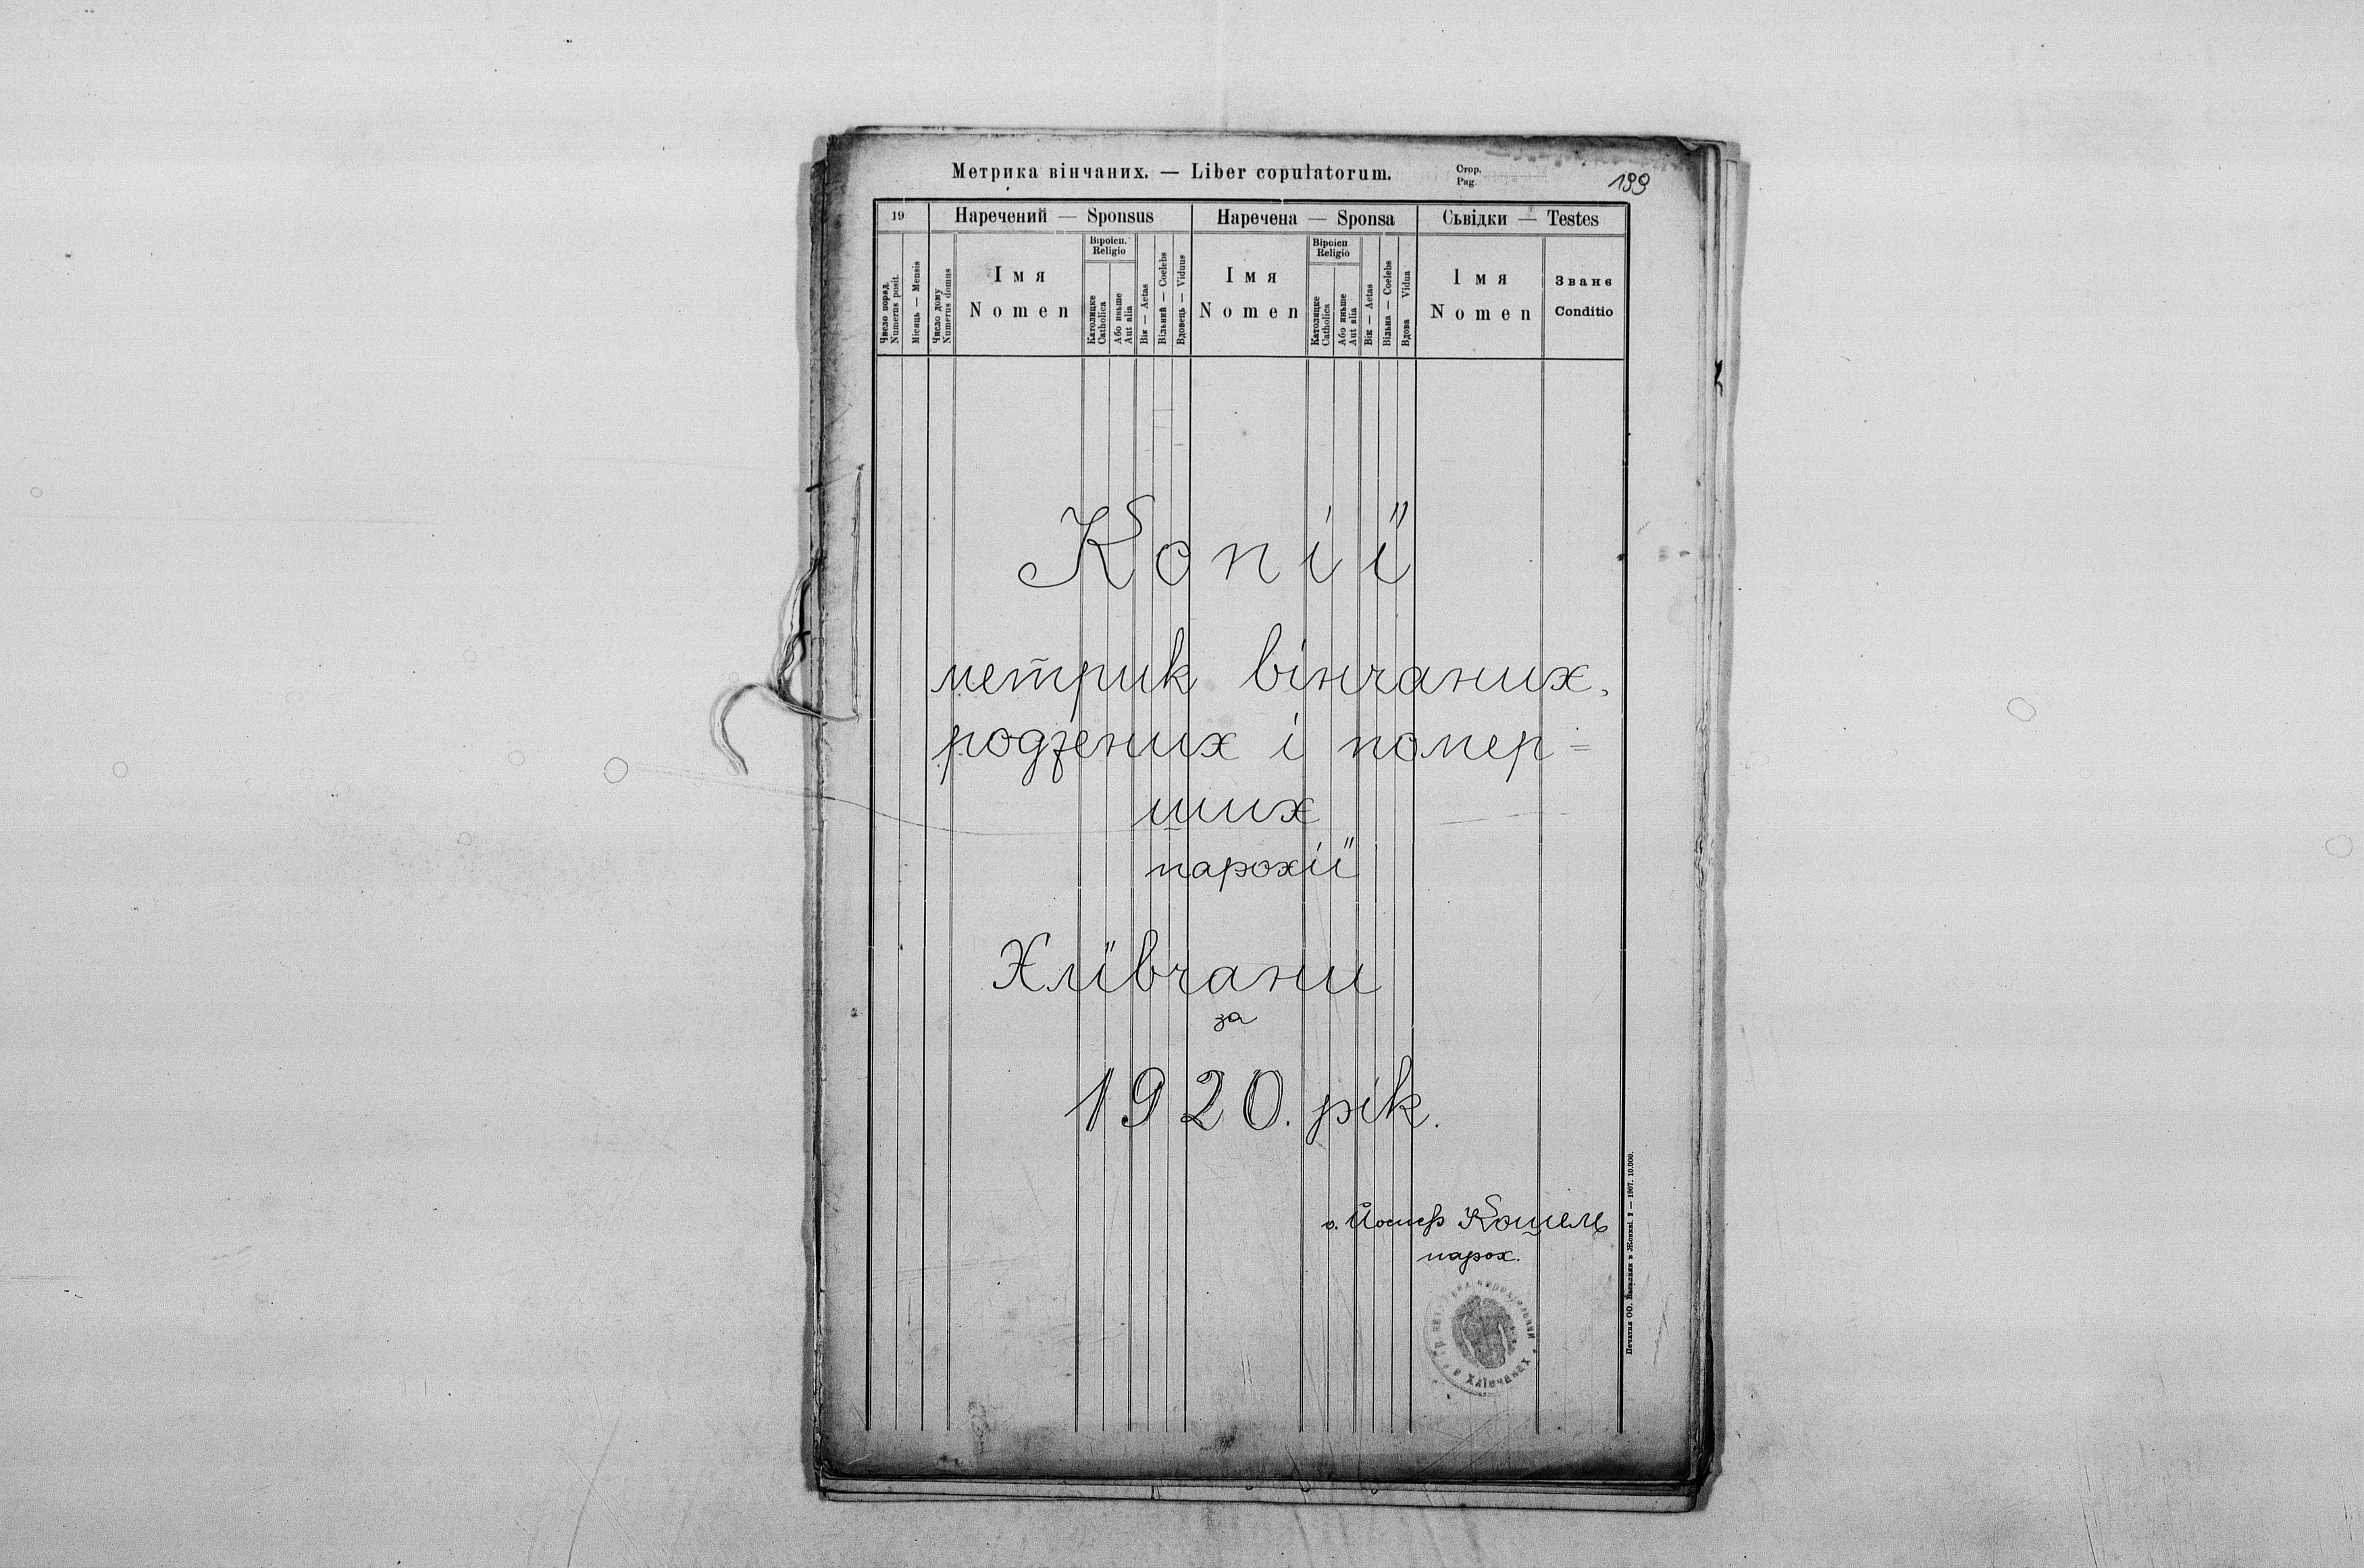 Метрика вінчаних. — Liber copulatorum.
Стор.
Pag.
199
19
Наречений — Sponsus
Наречена — Sponsa
Сьвідки — Testes
Число поряд.
Numerus posit.
Місяць — Mensis
Число дому
Numerus domus
Імя
Nomen
Віроісп.
Religio
Католицке
Catholica
Або иньше
Aut alia
Вік — Aetas
Вільний — Coelebs
Вдовець — Viduus
Імя
Nomen
Віроісп.
Religio
Католицке
Catholica
Або иньше
Aut alia
Вік — Aetas
Вільна — Coelebs
Вдова Vidua
Імя
Nomen
Званє
Conditio
Копії
метрик вінчаних,
родzених і помер=
ших
парохії
Хлївчани
за
1920. рік.
о. Йосиф Кошель
парох.
в Хлівчанах
Печатня ОО. Василиян в Жовкві. 2 — 1907. 10.000.